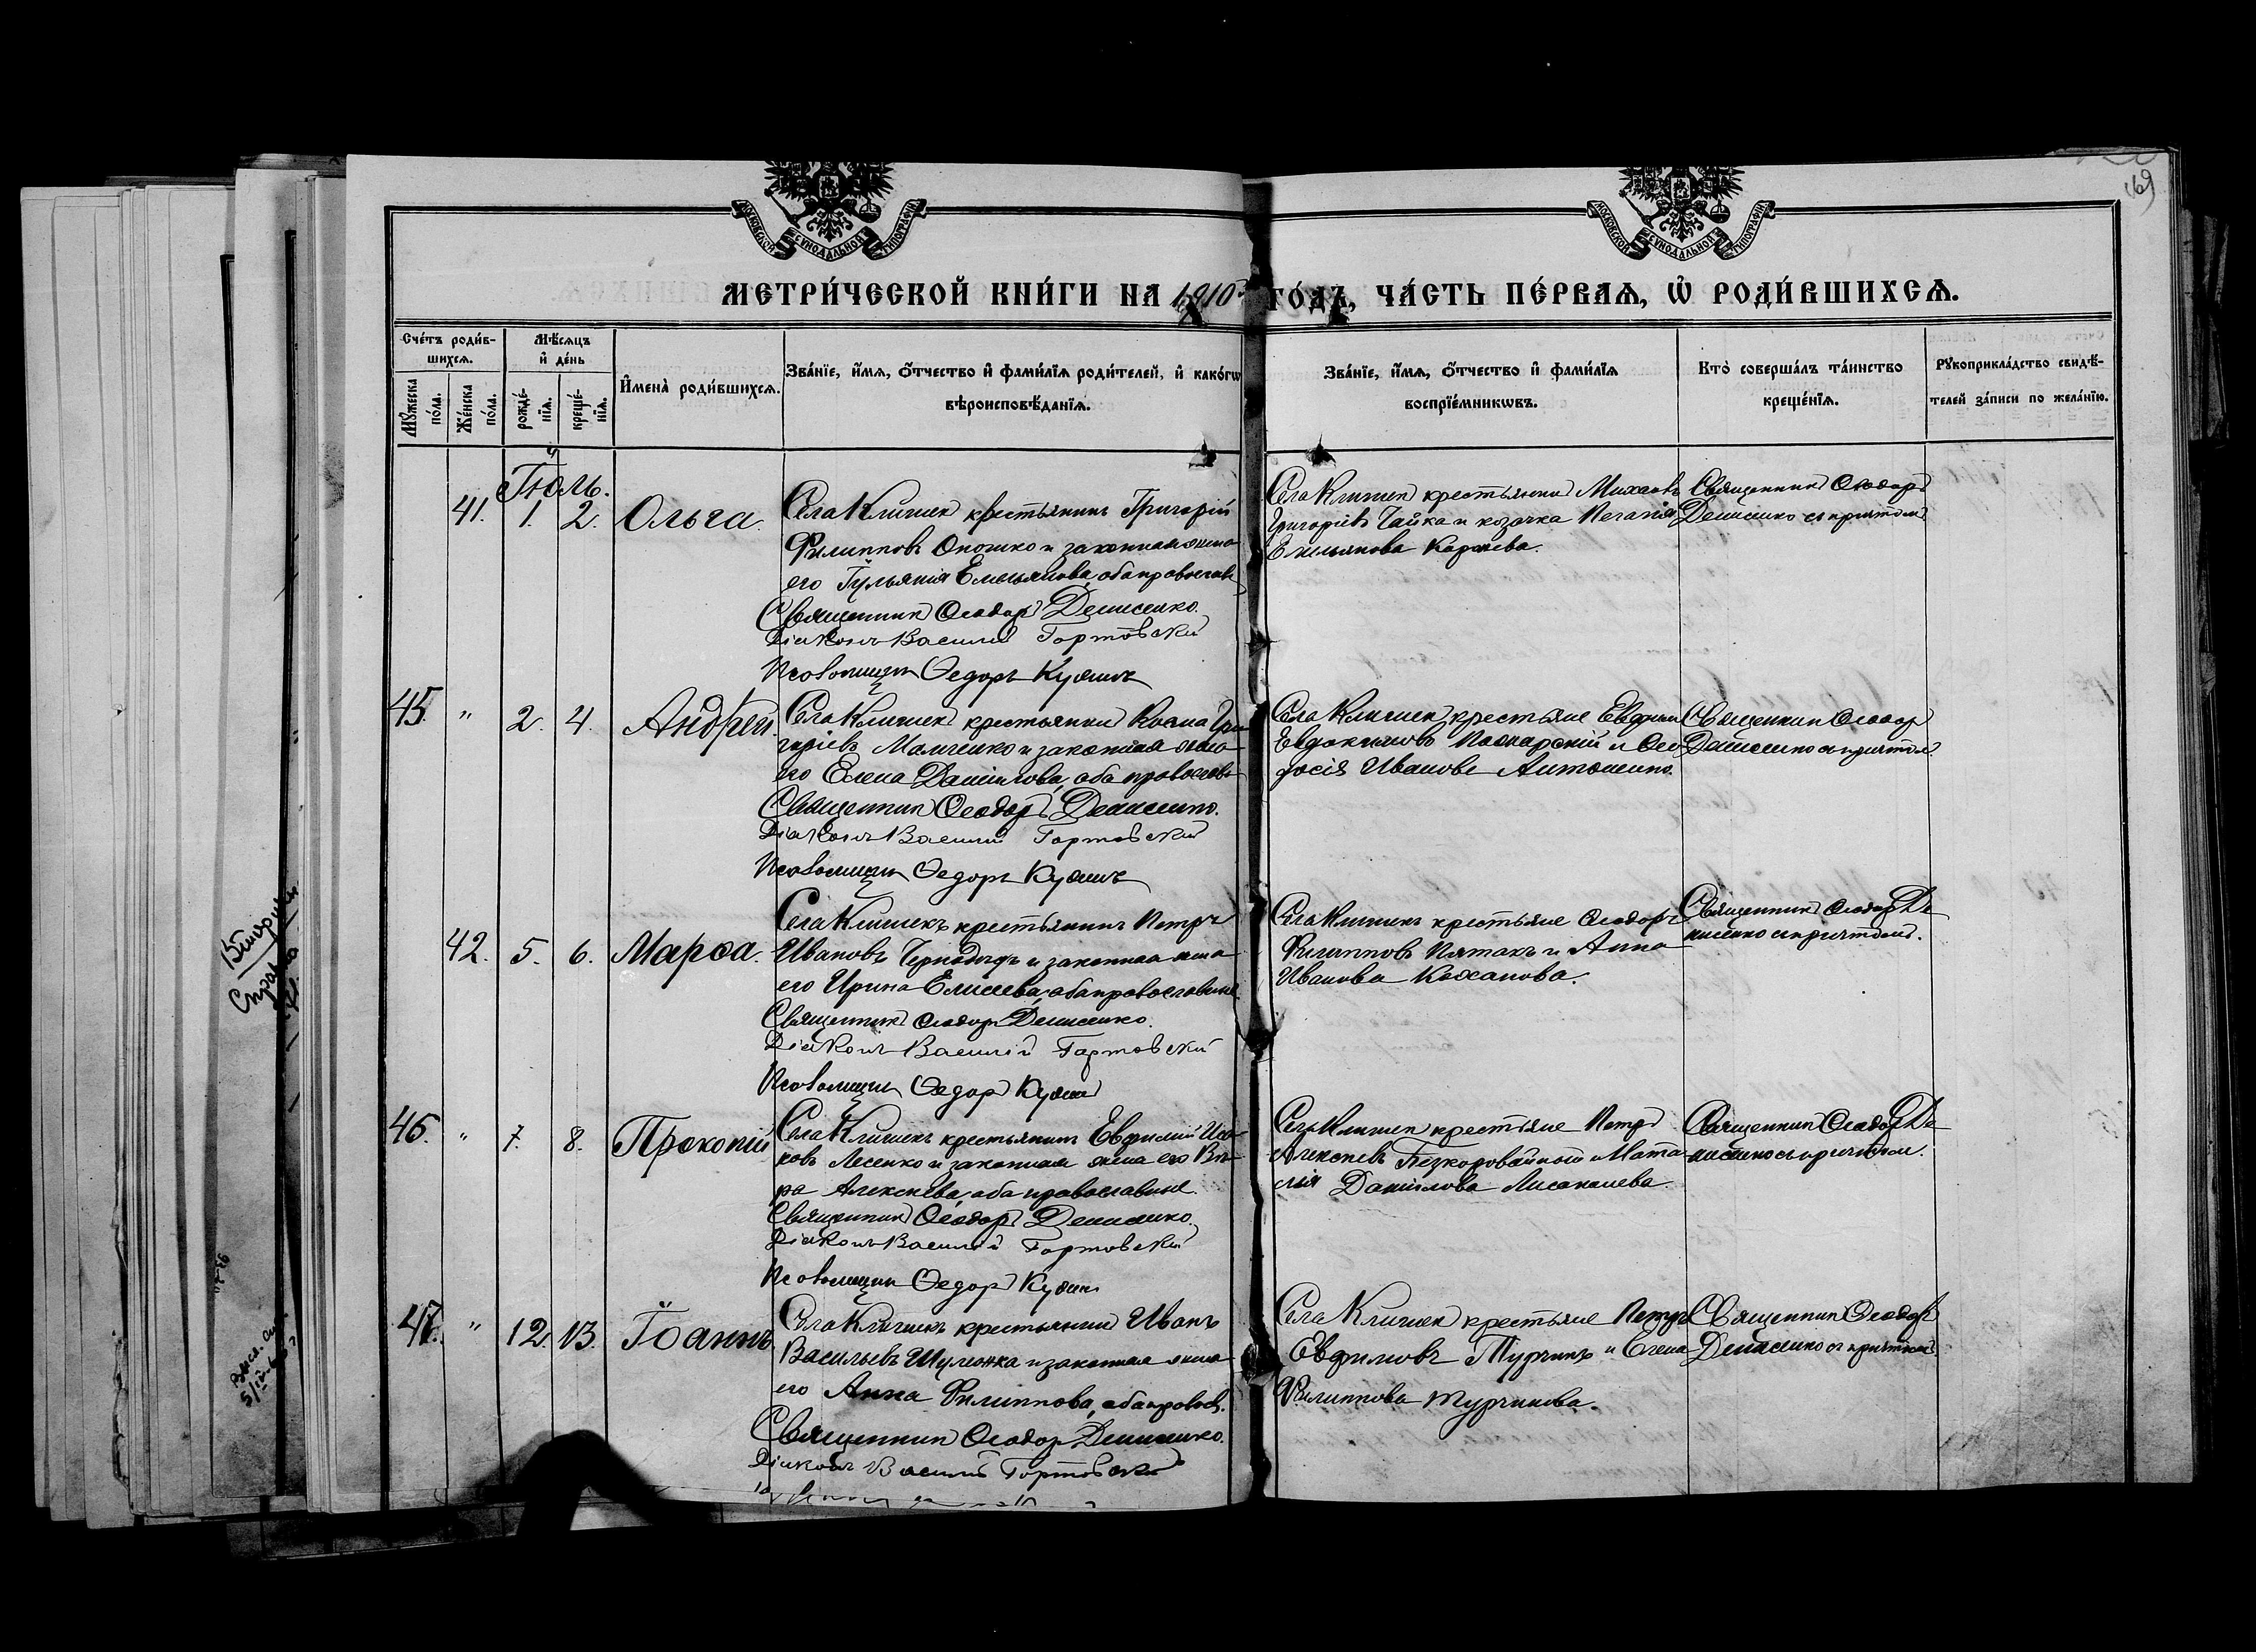 МОСКОВСКОЙ СѴНОДАЛЬНОЙ ТИПОГРАФІИ
МОСКОВСКОЙ СѴНОДАЛЬНОЙ ТИПОГРАФІИ
169
МЕТРИ́ЧЕСКОЙ КНИ́ГИ НА 1910 ГО́ДЪ, ЧА́СТЬ ПЕ́РВАЯ, Ѡ РОДИ́ВШИХСЯ.
Сче́тъ роди́в-
шихся.
Мѣ́сяцъ
и де́нь
Му́жеска по́ла.
Же́нска по́ла.
рожде́-
нїя.
креще́-
нїя.
Имена̀ роди́вшихся.
Зва́нїе, и́мя, о́тчество и фами́лїя роди́телей, и како́гѡ
вѣроисповѣ́данїя.
Зва́нїе, и́мя, о́тчество и фами́лїя
воспрїе́мникѡвъ.
Кто̀ соверша́лъ та́инство
креще́нїя.
Рукоприкла́дство свидѣ́-
телей за́писи по жела́нїю.
Іюль.
41. 1. 2. Ольга.
Села Клишекъ крестьянинъ Григорій
Филипповъ Оношко и законная жена
его Іульянія Емельянова, оба православ
Священникъ Ѳеодоръ Денисенко.
Діаконъ Василий Гортовский
Псаломщикъ Ѳедоръ
Села Клишекъ крестьянинъ Михаилъ
Григоріевъ Чайка и козачка Пелагія
Емельянова
Священникъ Ѳеодоръ
Денисенко съ причтомъ
45. " 2. 4. Андрей.
Села Клишекъ крестьянинъ Косма Гри-
горіевъ и законная жена
его Елена Даніилова, оба православ
Священникъ Ѳеодоръ Денисенко.
Діаконъ Василий Гортовский
Псаломщикъ Ѳедоръ
Села Клишекъ крестьяне Евфимій
Евдокимовъ и Ѳео-
досія Иванова Антоненко.
Священникъ Ѳеодоръ
Денисенко съ причтомъ
42. 5. 6. Марѳа.
Села Клишекъ крестьянинъ Петръ
Ивановъ и законная жена
его Ирина Елисеева, оба православные.
Священникъ Ѳеодоръ Денисенко.
Діаконъ Василій Гортовский
Псаломщикъ Ѳедоръ
Села Клишекъ крестьяне Ѳеодоръ
Филипповъ Пятакъ и Анна
Иванова Коханова.
Священникъ Ѳеодоръ Де-
нисенко съ причтомъ.
46. " 7. 8. Прокопій
Села Клишекъ крестьянинъ Евфимій
Лесенко и законная жена его Вѣ-
ра Алексѣева, оба православные.
Священникъ Ѳеодоръ Денисенко.
Діаконъ Василій Гортовский
Псаломщикъ Ѳедоръ
Села Клишекъ крестьяне Петръ
Алексѣевъ Безкоровайный и Ната-
лія Даніилова
Священникъ Ѳеодоръ Де-
нисенко съ причтомъ.
47. " 12. 13. Іоаннъ.
Села Клишекъ крестьянинъ Иванъ
Васильевъ и законная жена
его Анна Филиппова, оба правосл.
Священникъ Ѳеодоръ Денисенко.
Діаконъ Василій Гортовский
Села Клишекъ крестьяне Петръ
Евфимовъ Турчинъ и Елена
Филиппова Турчинова.
Священникъ Ѳеодоръ
Денисенко съ причтомъ.